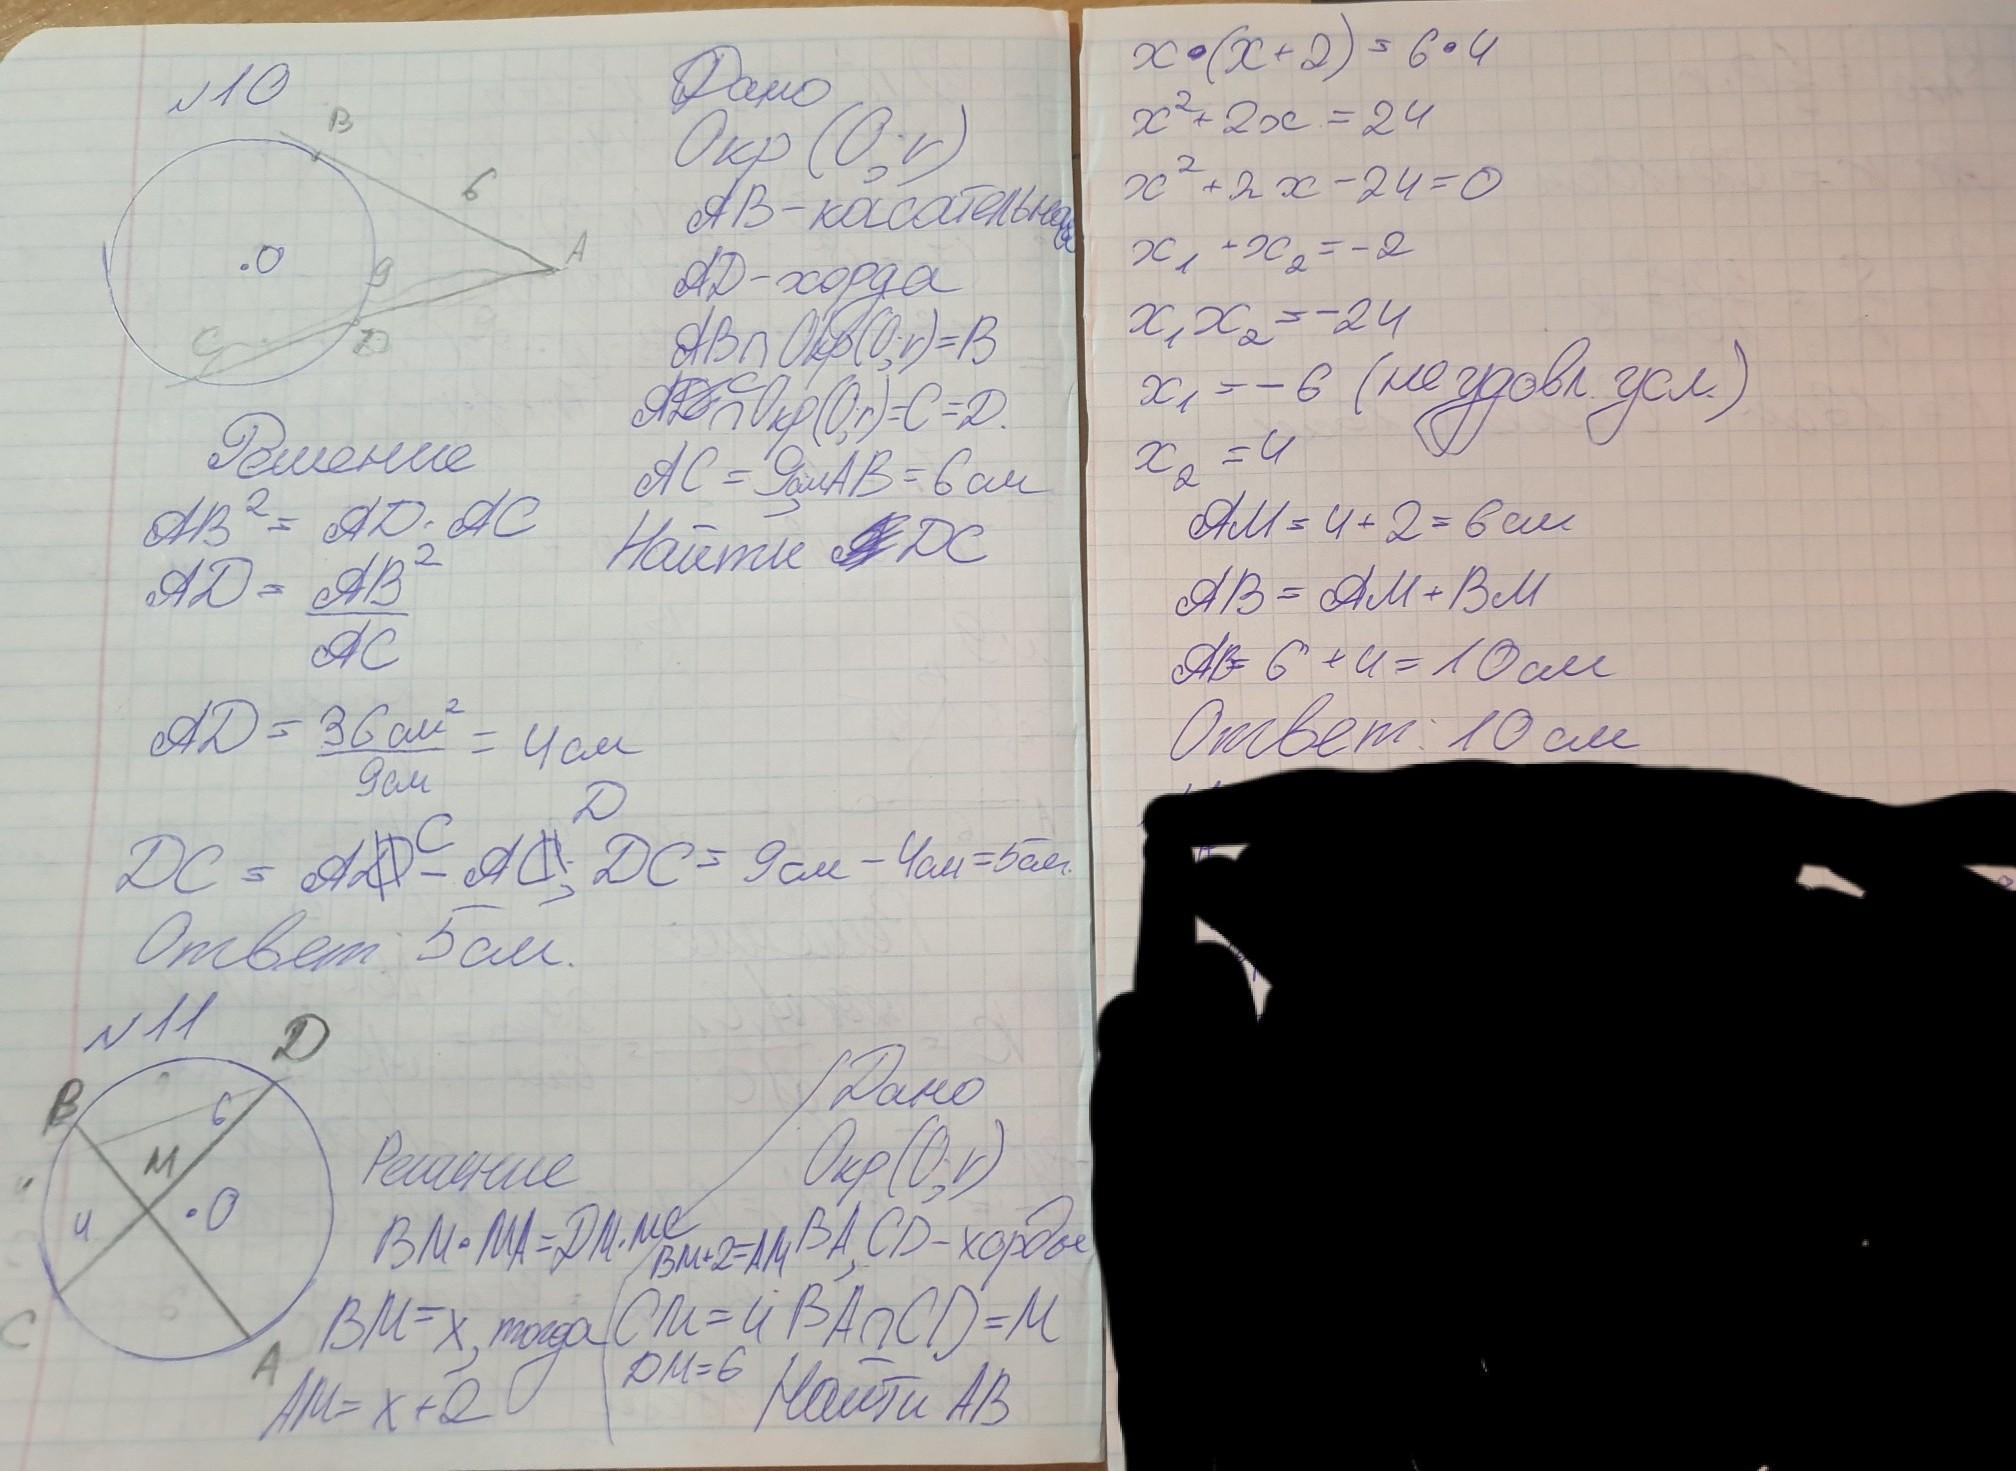 №10
B
6
A
O
9
C
D
Дано
Окр(O;r)
AB-касательная
AD-хорда
AB∩Окр(O;r)=B
AC∩Окр(O;r)=C=D.
AC=9см, AB=6см
Найти DC
Решение
AB²=AD·AC
AD=AB²/AC
AD=36см²/9см=4см
DC=AC-AD; DC=9см-4см=5см.
Ответ: 5см.
№11
D
B
6
M
O
4
C
A
Решение
BM·MA=DM·MC
BM=x, тогда
AM=x+2
Дано
Окр(O;r)
BM+2=AM BA, CD-хорды
CM=4 BA∩CD=M
DM=6
Найти AB
x·(x+2)=6·4
x²+2x=24
x²+2x-24=0
x₁+x₂=-2
x₁x₂=-24
x₁=-6 (не удовл. усл.)
x₂=4
AM=4+2=6см
AB=AM+BM
AB=6+4=10см
Ответ: 10см